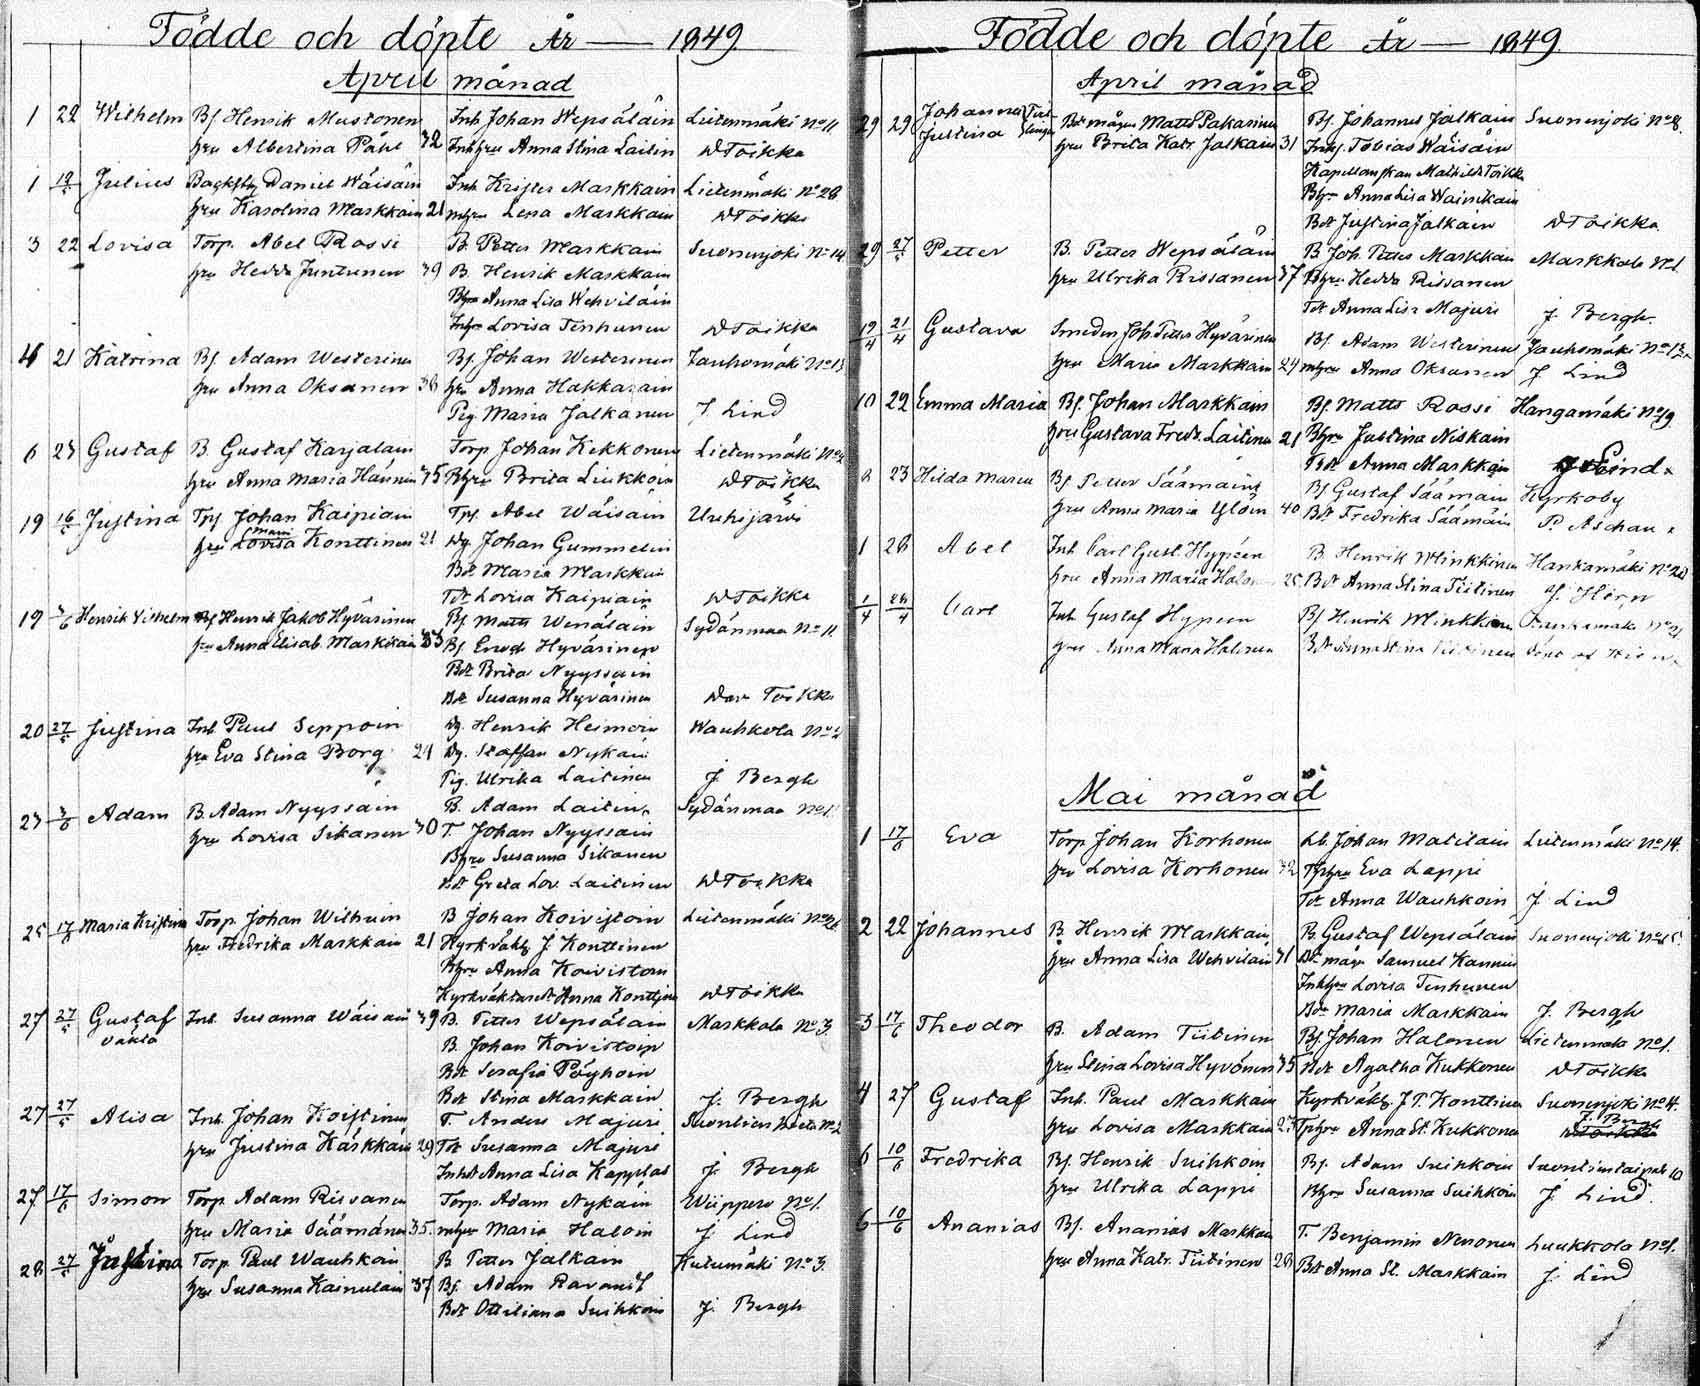 Födde och döpte År — 1849
April månad
1 22 Wilhelm Bf Henrik Mustonen Inh Johan Wepsäläin Lietenmäki No 11
hru Albertina Påhl 32 Inhhru Anna Stina Laitin W Toikka
1 13/5 Julius Daniel Wäisäin Inh Krister Markkain Lietenmäki No 28
hru Karolina Markkain 21 Lena Markkain W Toikka
3 22 Lovisa Torp. Abel Rossi B. Petter Markkain Suonenjoki No 14
hru Hedda Juntunen 39 B. Henrik Markkain
Bhru Anna Lisa Wehviläin
Lovisa Tenhunen W Toikka
4 21 Katrina Bf. Adam Westerinen Bf. Johan Westerinen Jauhomäki No 13
hru Anna Oksanen 38 hru Anna Hakkarain
Pig Maria Jalkanen J. Lind
6 23 Gustaf B. Gustaf Karjalain Torp Johan Kekkonen Lietenmäki No 2
hru Anna Maria Hännin 35 Bhru Brita Liukkoin W Toikka
19 16/5 Justina Tpf. Johan Kaipiain Tpf. Abel Wäisäin Uuhijärvi
hru Lovisa Konttinen 21 Dg. Johan Gummelin
Maria
Bdt Maria Markkain
Tdt Lovisa Kaipiain W Toikka
19 3/6 Henrik Vilhelm Bf Henrik Jakob Hyvärinen Bf Matts Wenäläin Sydänmaa No 11
hru Anna Elisab. Markkain 33 Bf. Enok Hyvärinen
Bdt Brita Nyyssäin
Bdt Susanna Hyvärinen W Toikka
20 27/5 Justina Inh Paul Seppoin Dg. Henrik Heimoin Wauhkola No 2
hru Eva Stina Borg 24 Dg. Staffan Nykäin
Pig. Ulrika Laitinen J. Bergh
23 3/6 Adam B. Adam Nyyssäin B. Adam Laitin Sydänmaa No 1
hru Lovisa Sikanen 30 T. Johan Nyyssäin
Bhru Susanna Sikanen
Bdt Greta Lov. Laitinen W Toikka
25 17/6 Maria Kristina Torp Johan Wilhuin B Johan Koivistoin Lietenmäki No 26
hru Fredrika Markkain 21 Kyrkväkt J Konttinen
Bhru Anna Koivistoin
Kyrkväktaredt Anna Konttinen W Toikka
27 27/5 Gustaf Inh. Susanna Wäisäin 39 B. Petter Wepsäläin Markkala No 3
oäkta B. Johan Koivistoin
Bdt Serafia Pöyhöin
Bdt Stina Markkain J. Bergh
27 27/5 Alisa Inh. Johan Koistinen T. Anders Majuri No 2
hru Justina Kärkkäin 29 Tdt Susanna Majuri
Inhdt Anna Lisa J. Bergh
27 17/6 Simon Torp Adam Rissanen Torp. Adam Nykäin Wiippero No 1.
hru Maria Säämänen 35. Maria Haloin J. Lind
28 27/5 Justina Torp. Paul Wauhkoin B Petter Jalkain Kutumäki No 3.
hru Susanna Kainulain 37 Bf. Adam
Bdt Ottiliana Suihkoin J. Bergh
Födde och döpte År — 1849.
April månad
29 29 Johanna Justina måg Matts Pakarinen Bf. Johannes Jalkain Suonenjoki No 8.
hru Brita Katr. Jalkain 31 Inhf. Tobias Wäisäin
Mathild Toikka
Bhru Anna Lisa Wainikain
Bdt Justina Jalkain W Toikka
29 27/5 Petter B. Petter Wepsäläin B. Joh. Petter Markkain Markkala No 1.
hru Ulrika Rissanen 37 Bhru Hedda Rissanen
Tdt Anna Lisa Majuri J. Bergh.
19/4 21/4 Gustava Smeden Joh. Petter Hyvärinen Bf. Adam Westerinen Jauhomäki No 13
hru Maria Markkain 24 Anna Oksanen J Lind
10 22 Emma Maria Bf. Johan Markkain Bf. Matts Rossi Hangamäki No 19
hru Gustava Fredr. Laitinen 21 Bhru Justina Niskain
Tdt Anna Markkain J Lind
2 23 Hilda Maria Bf Petter Säämäin Bf Gustaf Säämäin Kyrkoby
hru Anna Maria Ylöin 40 Bdt Fredrika Säämäin P. Aschan
1 28 Abel Inh Carl Gust. Hypéen B. Henrik Minkkinen Hankamäki No 20
hru Anna Maria 25 Bdt Anna Stina Tiitinen
1/4 28/4 Carl Inh Gustaf Hypeen Bf Henrik Minkkinen
hru Anna Maria Halonen Bdt Anna Stina Tiitinen
Mai månad
1 17/6 Eva Torp Johan Korhonen Johan Matilain Lietenmäki No 14.
hru Lovisa Korhonen 32 Tphru Eva Lappi
Tdt Anna Wauhkoin J Lind
2 22 Johannes B. Henrik Markkain B. Gustaf Wepsäläin Suonenjoki No 15
hru Anna Lisa Wehviläin 41 måg Samuel Kannin
Inhhru Lovisa Tenhunen
Bdt Maria Markkain J. Bergh
3 17/6 Theodor B. Adam Tiitinen Bf. Johan Halonen Lietenmäki No 1.
hru Stina Lovisa Hyvönen 35 Bdt Agatha Kukkonen W Toikka
4 27 Gustaf Inh. Paul Markkain Kyrkväkt J. P. Konttinen Suonenjoki No 4.
hru Lovisa Markkain 27 Tphru Anna St. Kukkonen J. Bergh
W Toikka
6 10/6 Fredrika Bf. Henrik Suihkoin Bf. Adam Suihkoin Suontientaipale 10
hru Ulrika Lappi Bhru Susanna Suihkoin J. Lind.
6 10/6 Ananias Bf. Ananias Markkain T. Benjamin Nenonen Luukkola No 1.
hru Anna Katr. Tiitinen 28 Bdt Anna St. Markkain J. Lind